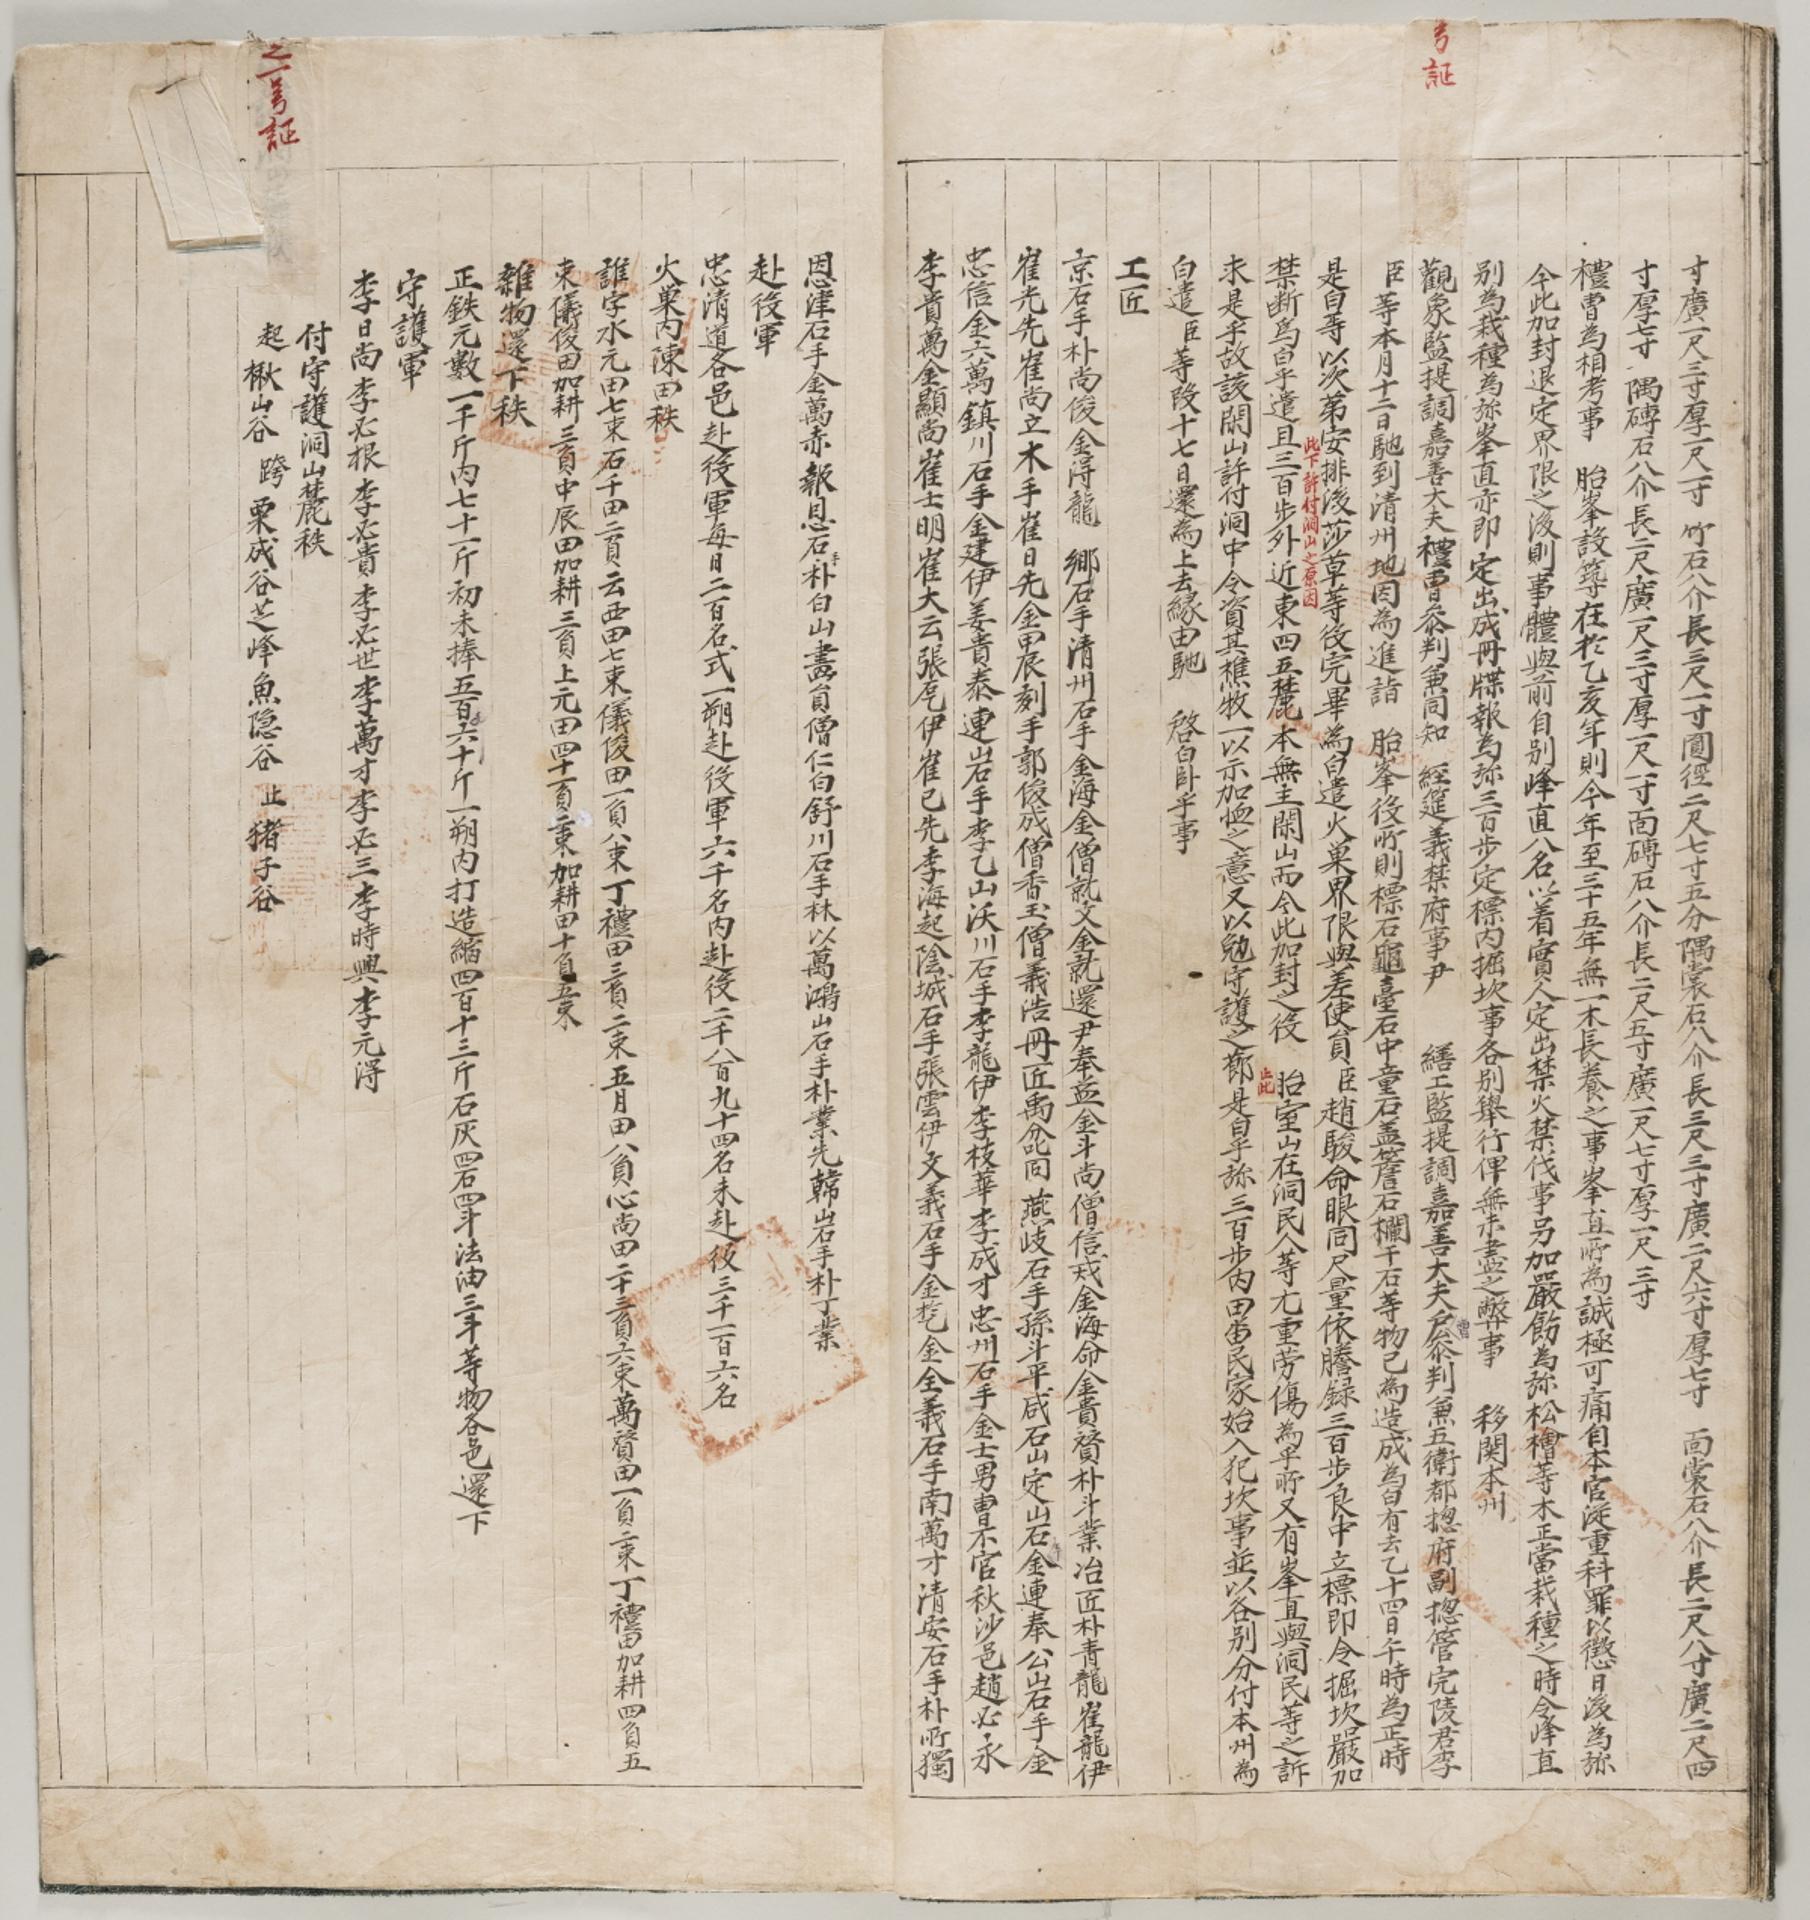 号証
寸廣一尺三寸厚一尺一寸 竹石八介長三尺一寸圓徑二尺七寸五分隅裳石八介長三尺三寸廣二尺六寸厚七寸 面裳石八介長二尺八寸廣二尺四
寸厚七寸 隅磚石八介長二尺廣一尺三寸厚一尺一寸面磚石八介長二尺五寸廣一尺七寸厚一尺三寸
禮曹為相考事 胎峯設築在於乙亥年則今年至三十五年無一木長養之事峯直所為誠極可痛自本官從重科罪以懲日後為㫆
今此加封退定界限之後則事體與前自別峰直八名以着實人定出禁火禁伐事另加嚴飭為㫆松檜等木正當栽種之時令峰直
別為栽種為㫆峯直亦即定出成冊牒報為㫆三百步定標內掘坎事各別舉行俾無未盡之弊事 移関本州
觀象監提調嘉善大夫禮曹叅判兼同知 經筵義禁府事尹 繕工監提調嘉善大夫戶曹叅判兼五衛都摠府副摠管完陵君李
臣等本月十二日馳到清州地因為進詣 胎峯役所則標石龜臺石中童石盖簷石欄干石等物已為造成為白有去乙十四日午時為正時
是白等以次第安排後莎草等役完畢為白遣火巢界限與差使員臣趙駿命眼同尺量依謄録三百步良中立標即令掘坎嚴加
此下許付洞山之原因
禁断為白乎遣且三百步外近東四五麓本無主閑山而今此加封之役 胎室山在洞民人等尤重劳傷為乎所又有峯直與洞民等之訴
止此
求是乎故該閑山許付洞中令資其樵牧一以示加恤之意又以勉守護之節是白乎㫆三百步內田畓民家始入犯坎事並以各別分付本州為
白遣臣等段十七日還為上去緣由馳 啓白臥乎事
工匠
京石手朴尚俊金淂龍 郷石手清州石手金海金僧就文金就還尹奉益金斗尚僧信戒金海命金貴贇朴斗業冶匠朴青龍崔龍伊
崔先先崔尚立木手崔日先金甲辰刻手郭俊成僧香玉僧義浩冊匠禹㖰同 燕岐石手孫斗平咸石山定山石手金連奉公山石手金
忠信金六萬鎮川石手金建伊姜貴泰連山石手李乙山沃川石手李龍伊李枝華李成才忠州石手金士男曹不官秋沙邑趙必永
李貴萬金顯尚崔士明崔大云張庀伊崔已先李海起陰城石手張雲伊文義石手金㐏金全義石手南萬才清安石手朴所獨
恩津石手金萬赤報恩石手朴白山畵員僧仁白舒川石手林以萬鴻山石手朴業先韓山石手朴丁業
赴役軍
忠清道各邑赴役軍每日二百名式一朔赴役軍六千名內赴役二千八百九十四名未赴役三千一百六名
火巢內陳田秩
誰字水元田七束石千田二負云西田七束儀俊田一負八束丁禮田三負二束五月田八負心尚田二十三負六束萬贇田一負二束丁禮田加耕四負五
束儀俊田加耕三負中辰田加耕三負上元田四十負二束加耕田十負五束
雜物還下秩
正鉄元數一千斤內七十一斤初未捧五百六十斤一朔內打造縮四百十三斤石灰四石四斗法油三斗等物各邑還下
守護軍
李日尚李必根李必貴李必世李萬才李必三李時興李元淂
之一号証
付守護洞山麓秩
起楸山谷 跨栗成谷芝峰魚隐谷 止猪子谷